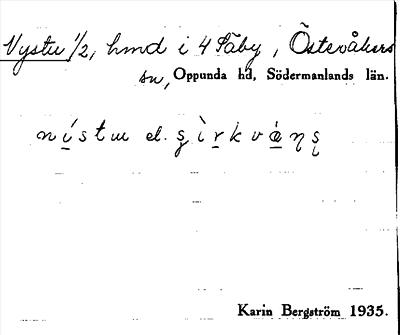 Nystu 1/2, hmd i 4 Säby, Östervåkers
sn, Oppunda hd, Södermanlands län.
nístɯ el. ʂìrkvæ̀ɳʂ
Karin Bergström 1935.